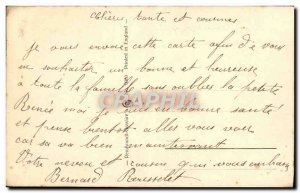 Chères tante et cousines
Je vous envoie cette carte afin de vous
souhaiter une bonne et heureuse
à toute la famille sans oublier la petite
Renée moi je suis en bonne santé
et pense bientôt allez vous voir
car sa va bien maintenant
Votre neveu et cousin qui vous embrasse
Bernard Rousselet